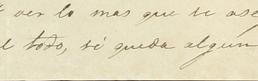 ver lo mas que se ase
todo, si queda algún